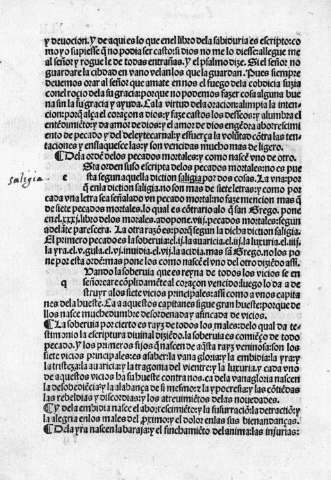 y deuocion. Y de aqui es lo que en el libro dela sabiduria es escripto: co
mo yo supiesse que no podia ser casto: si dios no me lo diesse: allegue me
al señor y rogue le de todas entrañas. Y el psalmo dize. Si el señor no
guardare la cibdad en vano velan los que la guardan. Pues siempre
deuemos orar al señor que amate en nos el fuego dela cobdicia suzia
con el rocio dela su gracia: porque no podemos fazer cosa alguna bue
na sin la su gracia y ayuda. Ca la virtud dela oracion: alimpia la inten-
cion: porq̃ alça el coraçon a dios: y faze castos los desseos: y alumbra el
entẽdimiẽto: y da amor de dios: y el amor de dios engẽdra aborrescimi
ento de pecado y del deleyte carnal: y esfuerça la volũtad cõtra las ten-
taciones y enflaquesce las: y son vencidas mucho mas de ligero.
¶ Dela ordẽ delos pecados mortales: y como nasce vno de otro.
saligia
e Sta orden suso escripta delos pecados mortales: no es pue
sta segun aquella diction saligia por dos cosas. La vna por
q̃ enla diction saligia no son mas de siete letras: y como por
cada vna letra sea señalado vn pecado mortal: no faze mencion mas q̃
de siete pecados mortales. lo qual es cõtrario alo q̃ san Grego. pone
en el .xxxj. libro delos morales. adõ pone .viij. pecados mortales: segun
adelãte parescera. La otra razõ es: porq̃ segun la dicha diction saligia.
El primero pecado es la soberuia: el .ij. la auaricia. el .iij. la luxuria. el .iiij.
la yra. el .v. gula. el .vj. inuidia. el .vij. la acidia. mas sã Grego. no los po
ne por esta ordẽ mas pone los como nasce el vno del otro diziẽdo assi.
q Uando la soberuia que es reyna de todos los vicios se en
señorea cõplidamẽte al coraçon vencido: luego lo da a de
struyr alos siete vicios principales: assi como a vnos capita
nes de la hueste. Ca a aquestos capitanes sigue gran hueste: porque de
llos nasce muchedumbre desordenada y afincada de vicios.
¶ La soberuia por cierto es rayz de todos los males: delo qual da te-
stimonio la escriptura diuinal diziẽdo. la soberuia es comiẽço de todo
pecado. y los primeros fijos q̃ nascen de aq̃sta rayz venimosa: son los
siete vicios principales: es a saber: la vana gloria: y la embidia: la yra: y
la tristeza: la auaricia: y la tragonia del vientre: y la luxuria. y cada vno
de aquestos vicios ha su hueste contra nos. ca dela vana gloria nascen
la desobediẽcia: y la alabança de si mesmo: y la ypocresia: y las cõtiẽdas
las rebeldias y discordias: y los atreuimiẽtos delas nouedades.
¶ Y dela embidia nasce el aborrescimiẽto: y la susurraciõ: la detractiõ: y
la alegria enlos males del proximo: y el dolor enlas sus bienandanças.
¶ Dela yra nascen la baraja: y el finchamiẽto del anima: las injurias: